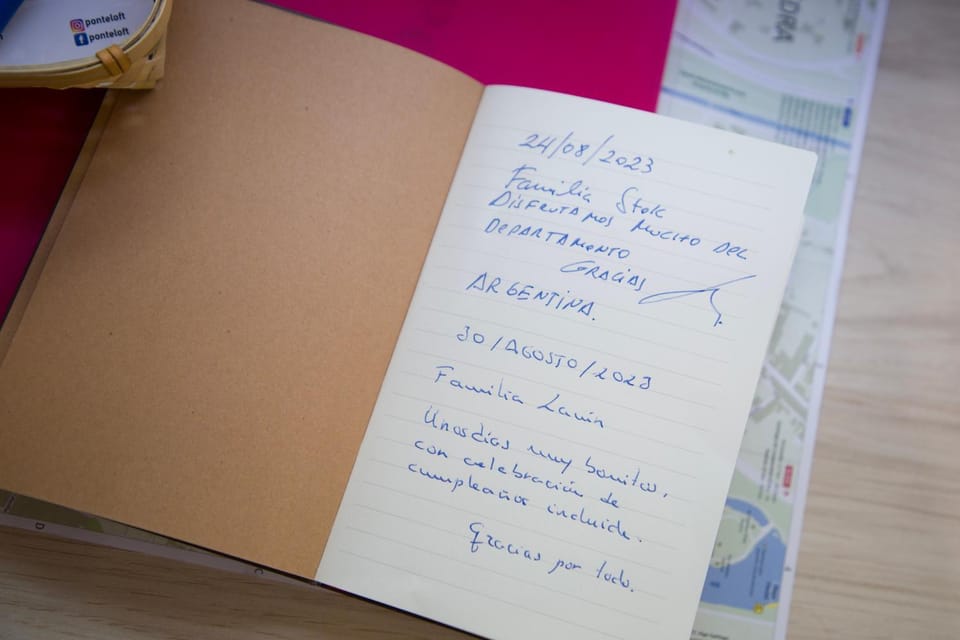 ponteloft
ponteloft
DRA
24/08/2023
Familia Stok
DISFRUTAMOS MUCHO DEL
DEPARTAMENTO
GRACIAS
ARGENTINA.
30/AGOSTO/2023
Familia Lavín
Unos días muy bonitos,
con celebración de
cumpleaños incluida.
Gracias por todo.